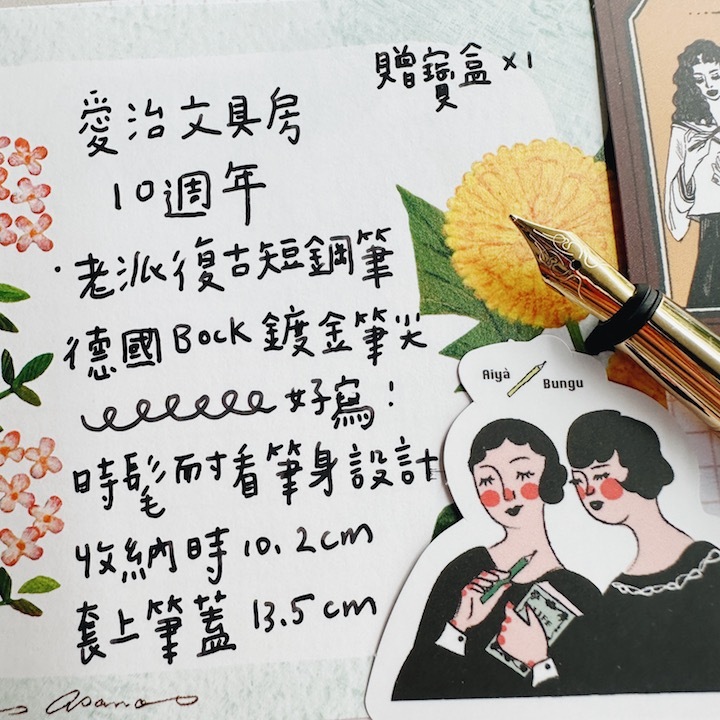 贈寶盒 x1
愛治文具房
10週年
·老派復古短鋼筆
德國Bock鍍金筆尖
好寫!
時髦耐看筆身設計
收納時10.2cm
套上筆蓋13.5cm
Aiyà Bungu
LIFE
asana